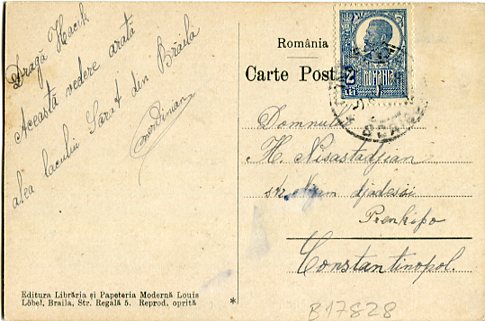 Dragă Hacik
Această vedere arată
alea lacului Sărat din Brăila
România
Carte Post
2
ROMÂNIA
Domnul
H. Nisastadjean
str Nizam djadesi
Prenkipo
Constantinopol.
Editura Librăria și Papeteria Modernă Louis
Löbel, Braila, Str. Regală 5. Reprod. oprită
*
B17828